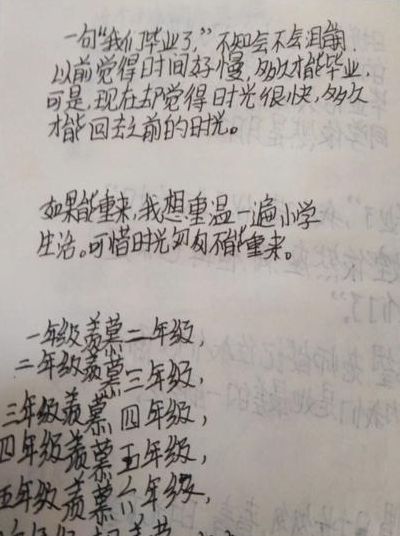 一句“我们毕业了，”不知会不会泪崩
以前觉得时间好慢，多久才能毕业，
可是，现在却觉得时光很快，多久
才能回去之前的时光。
如果能重来，我想重温一遍小学
生活。可惜时光匆匆不能重来。
一年级羡慕二年级，
二年级羡慕三年级，
三年级羡慕四年级，
四年级羡慕五年级，
五年级羡慕六年级，